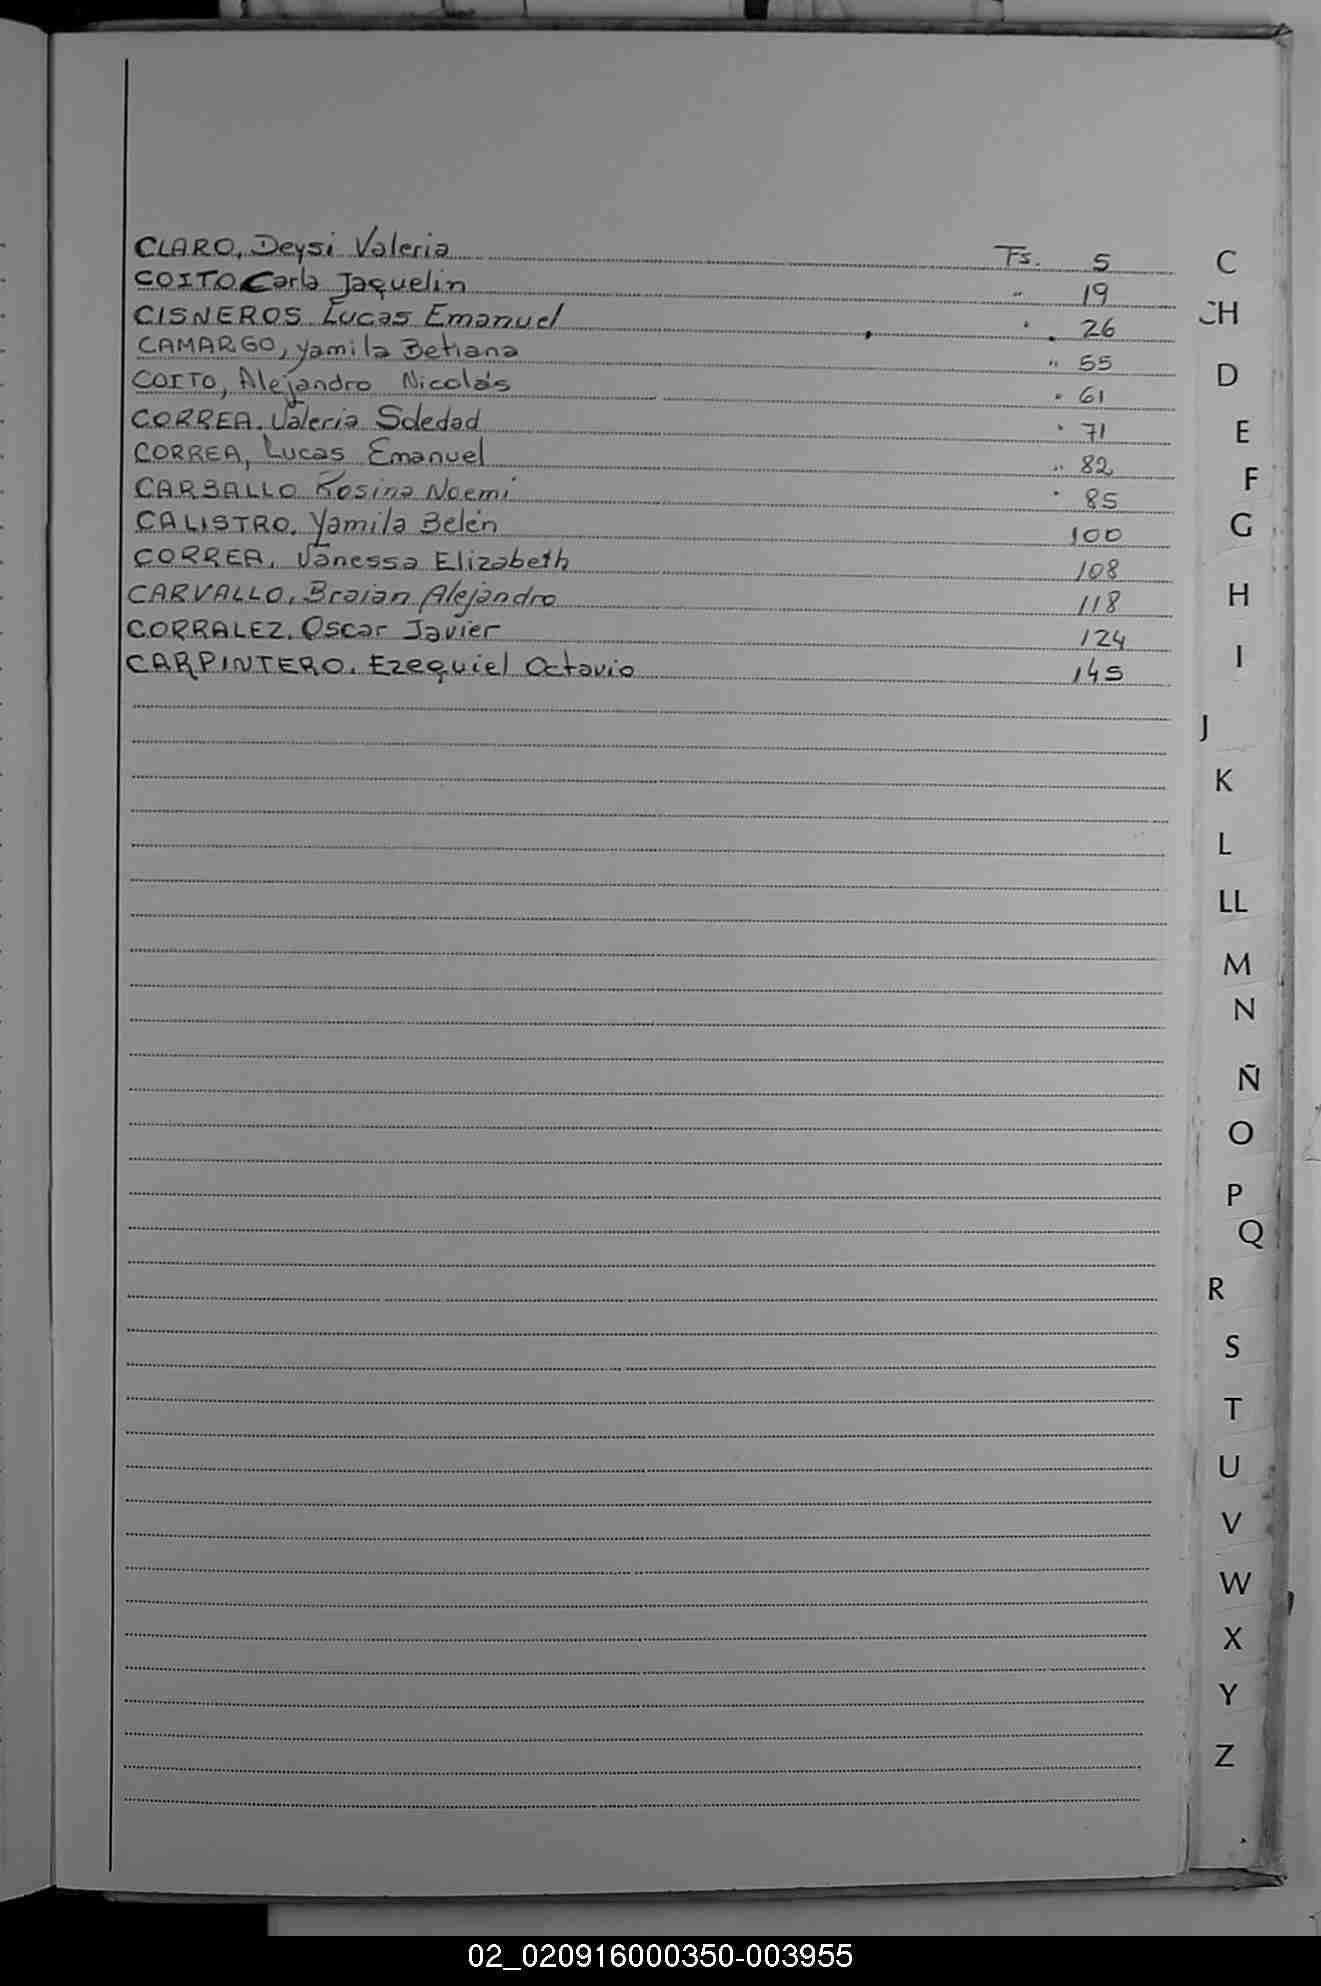 CLARO, Deysi Valeria Fs. 5
COITO Carla Jaquelin " 19
CISNEROS Lucas Emanuel " 26
CAMARGO, Yamila Betiana " 55
COITO, Alejandro Nicolás " 61
CORREA. Valeria Soledad " 71
CORREA, Lucas Emanuel " 82
CARBALLO Rosina Noemi " 85
CALISTRO. Yamila Belén 100
CORREA. Vanessa Elizabeth 108
CARVALLO. Braian Alejandro 118
CORRALEZ. Oscar Javier 124
CARPINTERO. Ezequiel Octavio 145
C
CH
D
E
F
G
H
I
J
K
L
LL
M
N
Ñ
O
P
Q
R
S
T
U
V
W
X
Y
Z
02_020916000350-003955